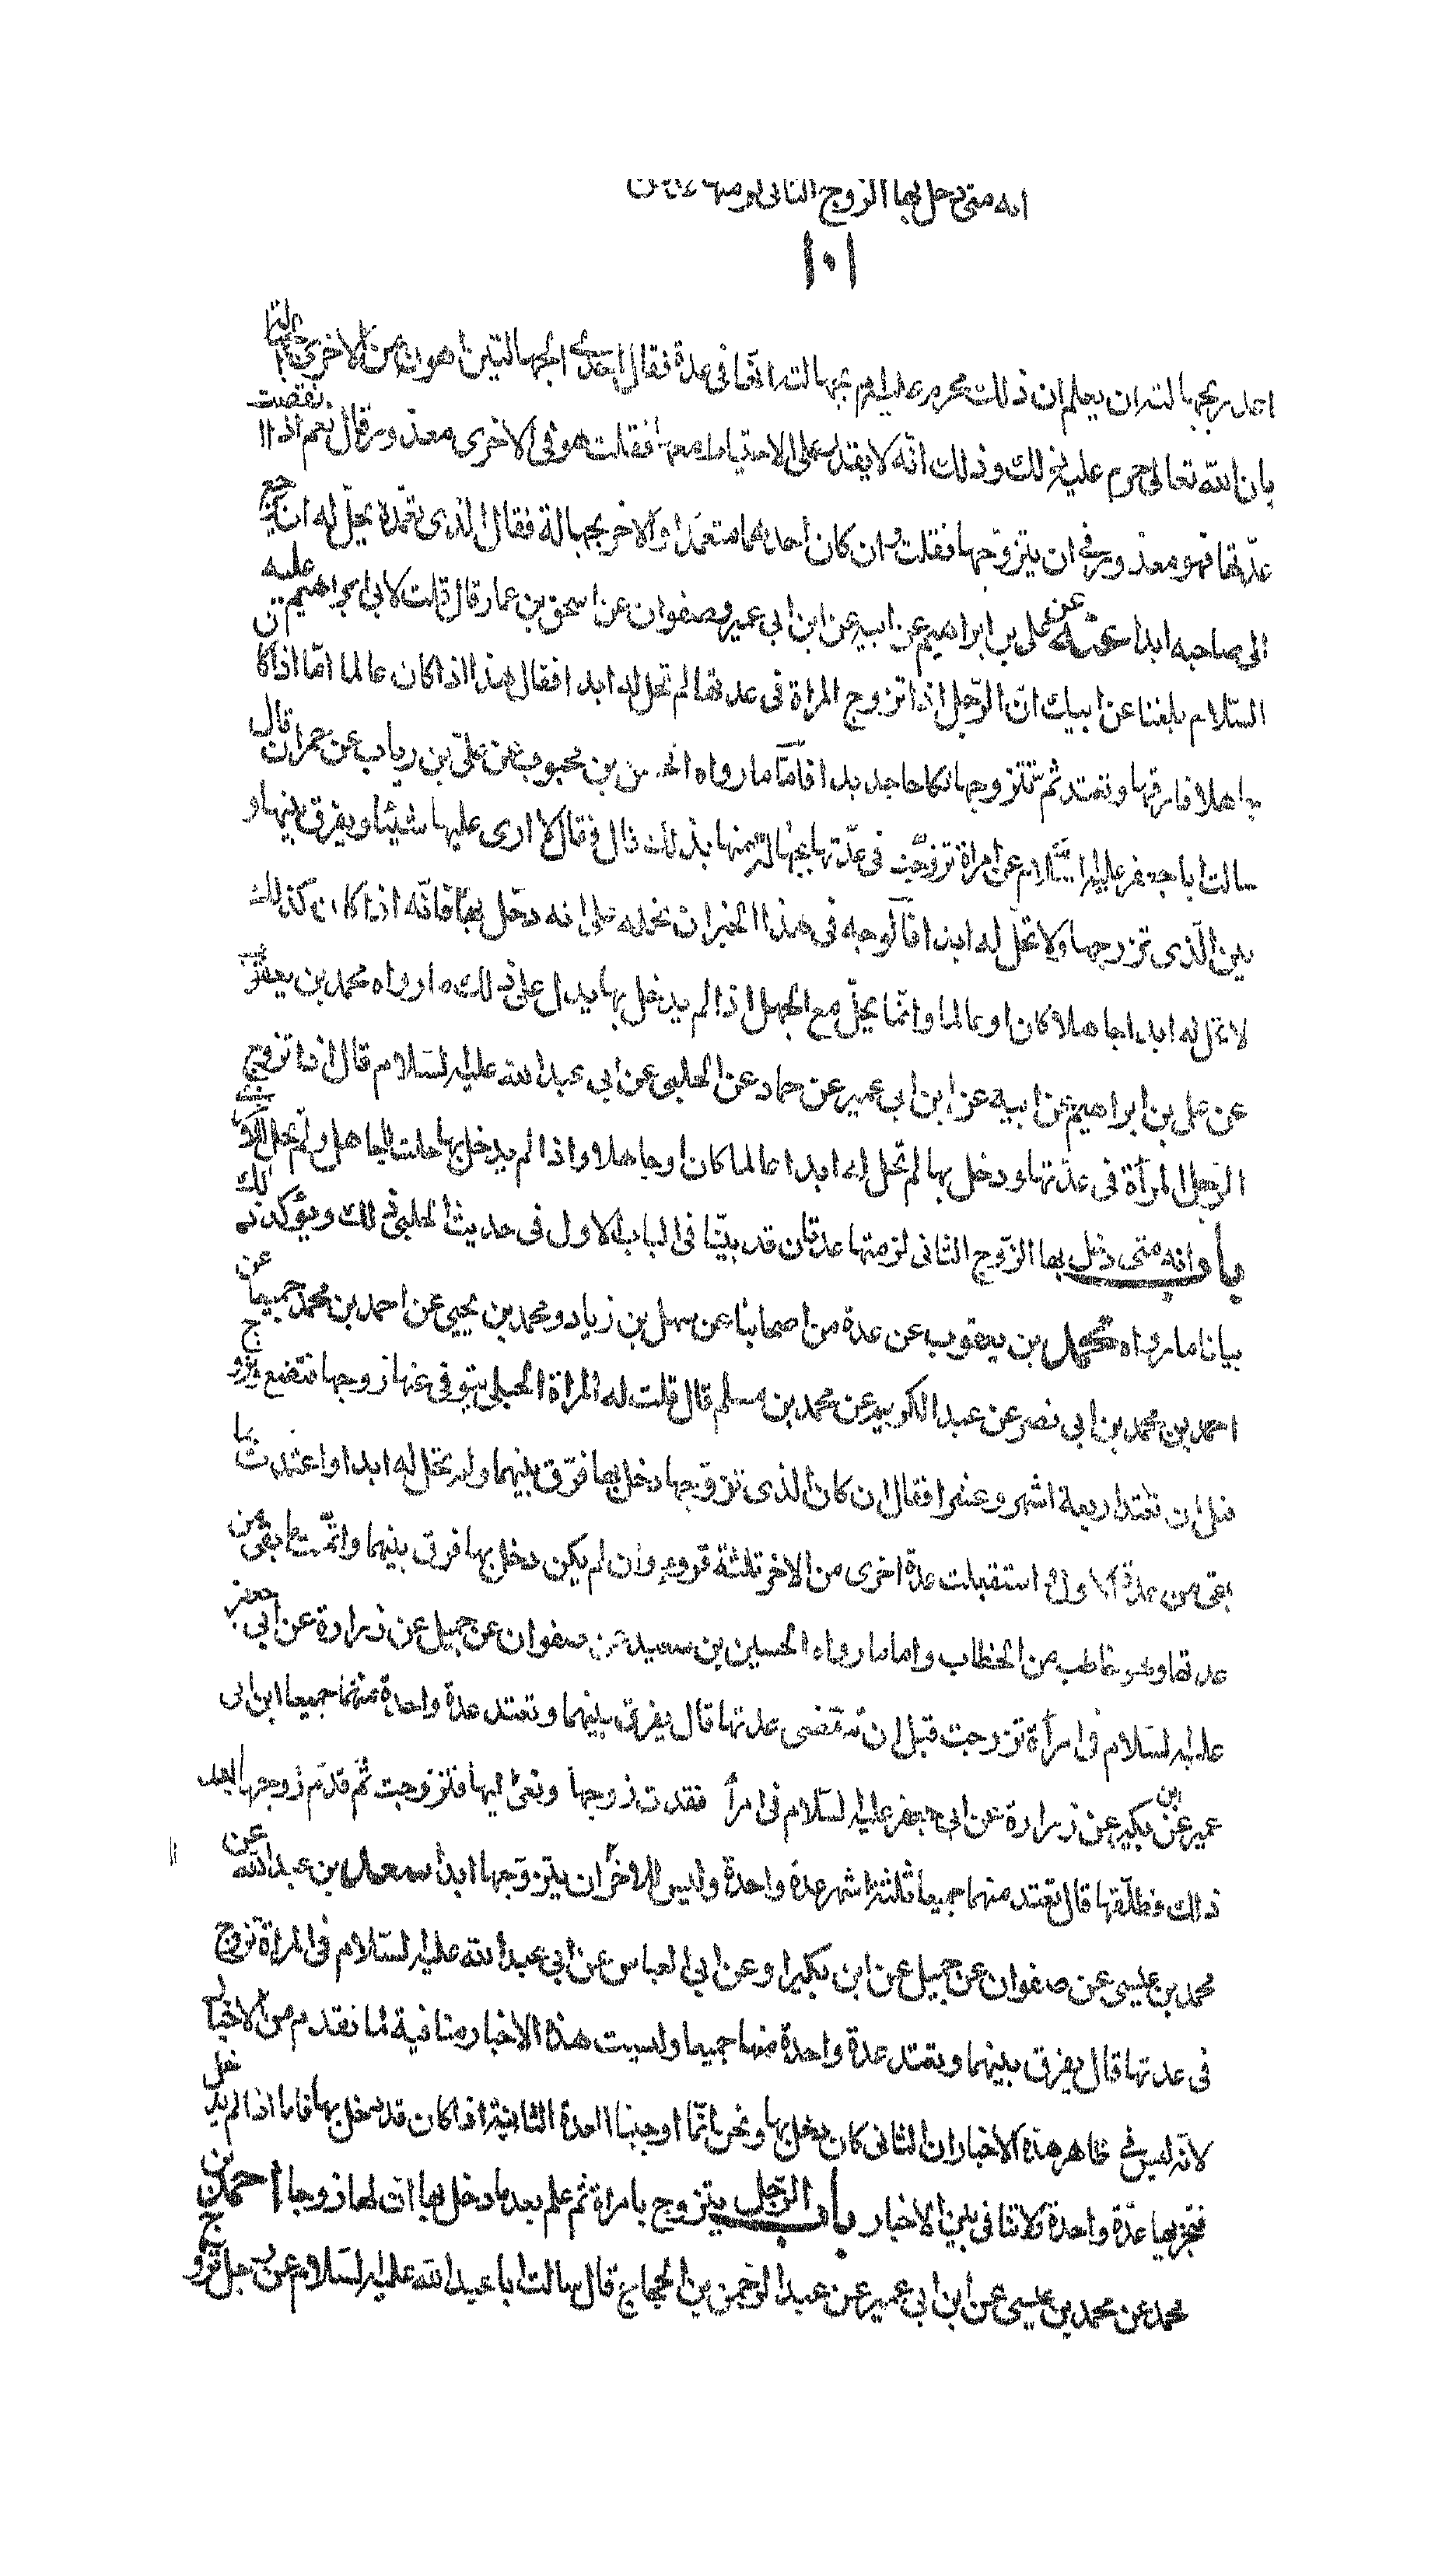 انه متى دخل بها الزوج الثانى لزمتها عدتان
١٠١
احد يجهالته ان يعلم ان ذلك محرم عليه ام بجهالته انها فى عدة فقال احدى الجهالتين اهون من الاخرى الجهالة
بان الله تعالى حرم عليه ذلك وذلك انّه لا يقدر على الاحتياط معها فقلت هو فى الاخرى معذور قال نعم اذا انقضت
عدّتها فهو معذور فى ان يتزوّجها فقلت وان كان احدهما متعمّدا والاخر بجهالة فقال الذى تعمّد لا يحلّ له ان يرجع
الى صاحبه ابدا عنه عن على بن ابراهيم عن ابيه عن ابن ابى عمير وصفوان عن اسحق بن عمار قال قلت لابى ابراهيم عليه
السّلام بلغنا عن ابيك انّ الرّجل اذا تزوج المراة فى عدتها لم تحل له ابدا فقال هذا اذا كان عالما امّا اذا كان
جاهلا فارقها وتعتد ثم يتزوجها نكاحا جديدا فأمّا ما رواه الحسن بن محبوب عن علىّ بن رياب عن حمران قال
سالت ابا جعفر عليه السّلام عن امراة تزوّجت فى عدّتها بجهالة منها بذلك قال فقال لا ارى عليها شيئا ويفرق بينها و
بين الّذى تزوجها ولا تحل له ابدا فالوجه فى هذا الخبر ان نحمله على انه دخل بها فانّه اذا كان كذلك
لا تحل له ابدا جاهلا كان او عالما وانّما يحلّ مع الجهل اذا لم يدخل بها يدل على ذلك ما رواه محمد بن يعقوب
عن على بن ابراهيم عن ابيه عن ابن ابى عمير عن حماد عن الحلبى عن ابى عبد الله عليه السّلام قال اذا تزوج
الرّجل المرأة فى عدّتها ودخل بها لم تحل له ابدا عالما كان او جاهلا واذا لم يدخل بها حلت للجاهل ولم تحل للاخر
باب انه متى دخل بها الزّوج الثانى لزمتها عدتان قد بيّنّا فى الباب الاول فى حديث الحلبى ذلك ويؤكد ذلك
بيانا ما رواه محمد بن يعقوب عن عدة من اصحابنا عن سهل بن زياد ومحمد بن يحيى عن احمد بن محمد جميعا عن
احمد بن محمد بن ابى نصر عن عبد الكريم عن محمد بن مسلم قال قلت له المراة الحبلى يتوفى عنها زوجها فتضع ويتزوج
قبل ان تعتد اربعة اشهر وعشرا فقال ان كان الذى تزوّجها دخل بها فرّق بينهما ولم تحل له ابدا واعتدت بما
بقى من عدة الاول استقبلت عدة اخرى من الاخر ثلثة قروء وان لم يكن دخل بها فرق بينهما واتمّت ما بقى من
عدتها وهو خاطب من الخطاب واما ما رواه الحسين بن سعيد عن صفوان عن جميل عن زرارة عن ابى جعفر
عليه السّلام فى امرأة تزوجت قبل ان تنقضى عدتها قال يفرق بينهما وتعتد عدة واحدة منهما جميعا ابن ابى
عمير عن ابن بكير عن زرارة عن ابى جعفر عليه السّلام فى امرأة فقدت زوجها ونعى اليها فتزوجت ثم قدم زوجها بعد
ذلك فطلّقها قال تعتد منهما جميعا ثلثة اشهر عدة واحدة وليس للاخر ان يتزوّجها ابدا سعد بن عبد الله عن
محمد بن عيسى عن صفوان عن جميل عن ابن بكير او عن ابى العباس عن ابى عبد الله عليه السّلام فى المراة تزوج
فى عدتها قال يفرق بينهما وتعتد عدة واحدة منهما جميعا وليست هذه الاخبار منافية لما تقدم من الاخبار
لانّه ليس فى ظاهر هذه الاخبار ان الثانى كان دخل بها ونحن انّما اوجبنا العدة الثانية اذا كان قد دخل بها فاما اذا لم يدخل
فيجزيها عدّة واحدة فلا تنافى بين الاخبار باب الرّجل يتزوج بامراة ثم علم بعد ما دخل بها ان لها زوجا احمد بن
محمد عن محمد بن عيسى عن ابن ابى عمير عن عبد الرّحمن بن الحجاج قال سالت ابا عبد الله عليه السّلام عن رجل تزوج